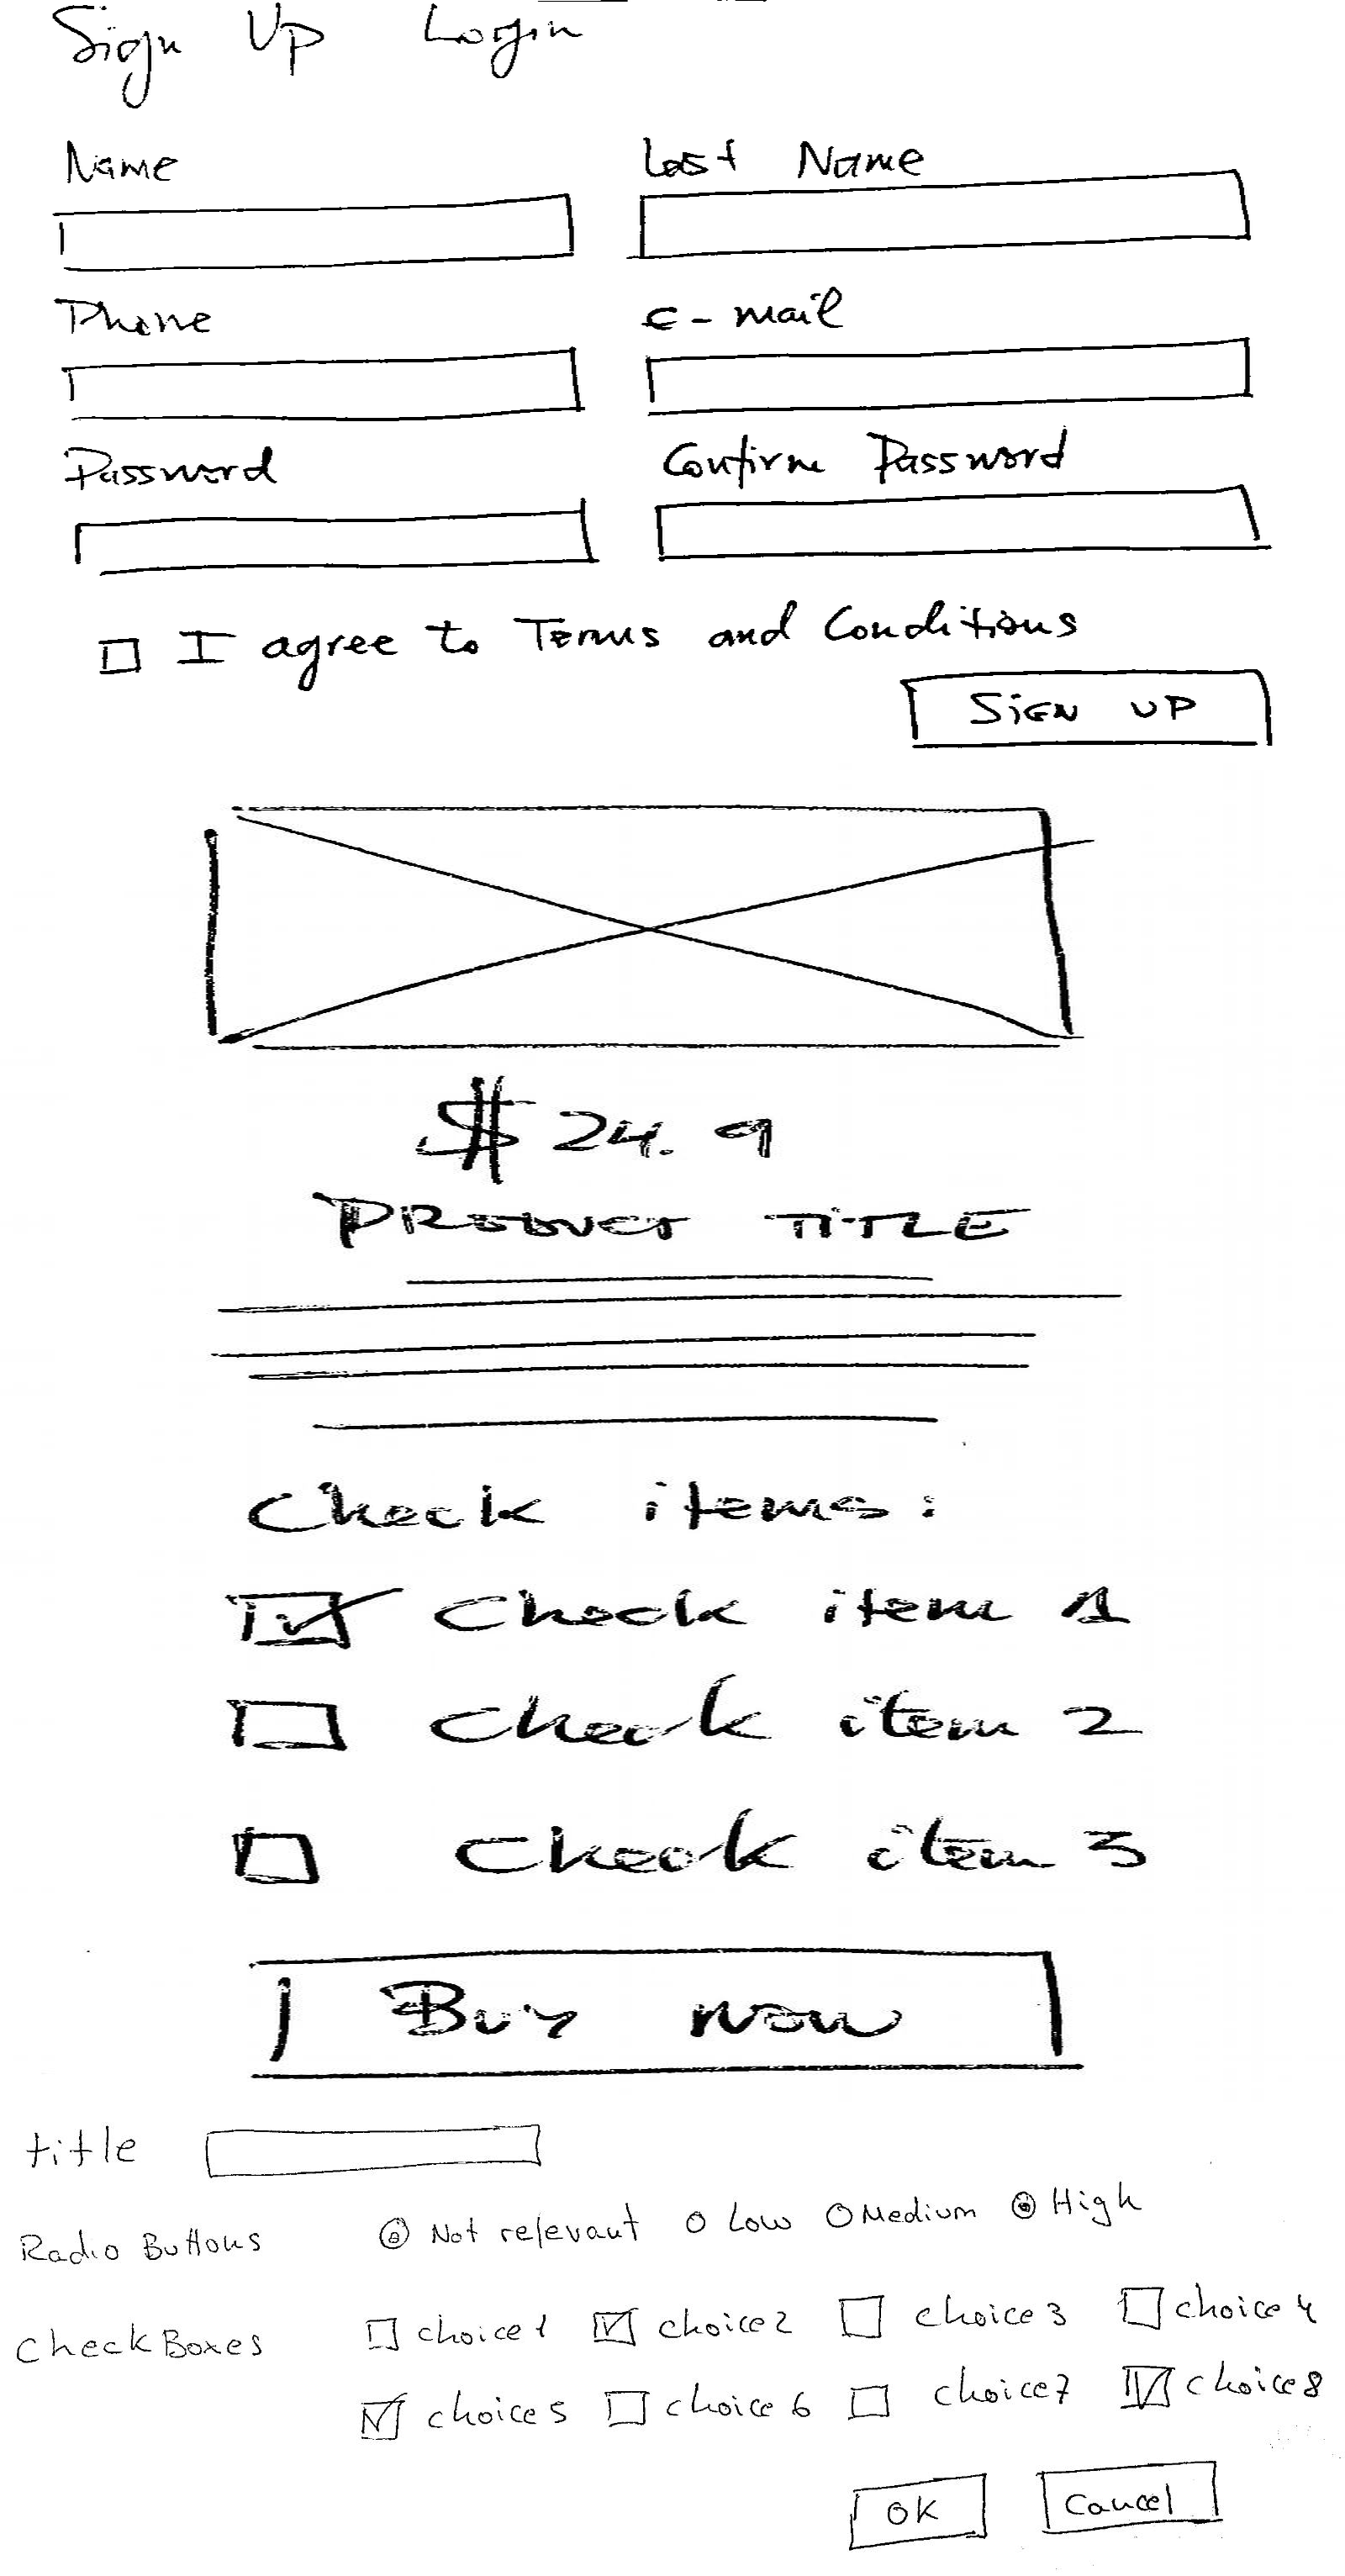 Sign Up Login
Name Last Name
Phone e-mail
Password Confirm Password
I agree to Terms and Conditions
SIGN UP
$24.9
PRODUCT TITLE
Check items:
Check item 1
Check item 2
Check item 3
Buy now
title
Radio Buttons Not relevant Low Medium High
CheckBoxes choice1 choice2 choice3 choice4
choice5 choice6 choice7 choice8
OK Cancel